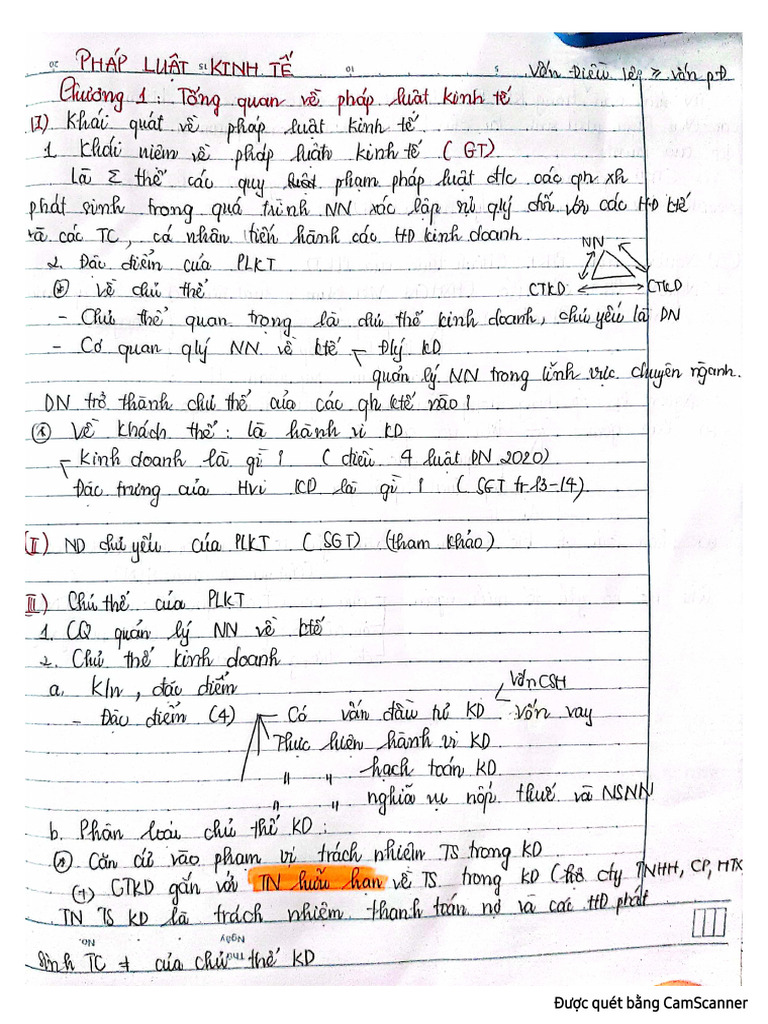 PHÁP LUẬT KINH TẾ
Vốn Điều lệ ≥ vốn pĐ
Chương 1: Tổng quan về pháp luật kinh tế
I) Khái quát về pháp luật kinh tế.
1. Khái niệm về pháp luật kinh tế (GT)
Là Σ thể các quy phạm pháp luật đ/c các qh xh
phát sinh trong quá trình NN xác lập sự qlý đối với các HĐ ktế
và các TC, cá nhân tiến hành các HĐ kinh doanh.
2. Đặc điểm của PLKT
NN
CTKD CTKD
* Về chủ thể
- Chủ thể quan trọng là chủ thể kinh doanh, chủ yếu là DN
- Cơ quan qlý NN về ktế - Đlý KD
quản lý NN trong lĩnh vực chuyên ngành.
DN trở thành chủ thể của các qh ktế nào?
* Về khách thể: là hành vi KD
- Kinh doanh là gì? (điều 4 luật DN 2020)
Đặc trưng của Hvi KD là gì? (SGT tr13-14).
II) ND chủ yếu của PLKT (SGT) (tham khảo)
III) Chủ thể của PLKT
1. CQ quản lý NN về ktế
2. Chủ thể kinh doanh
a. K/n, đặc điểm
vốn CSH
- Đặc điểm (4) - Có vốn đầu tư KD - vốn vay
Thực hiện hành vi KD
" " hạch toán KD
" " nghĩa vụ nộp thuế và NSNN
b. Phân loại chủ thể KD:
* Căn cứ vào phạm vi trách nhiệm TS trong KD
(+) CTKD gắn với TN hữu hạn về TS trong KD ( cty TNHH, CP, HTX
TN TS KD là trách nhiệm thanh toán nợ và các HĐ phát
sinh TC + của chủ thể KD
No.
Ngày
Được quét bằng CamScanner